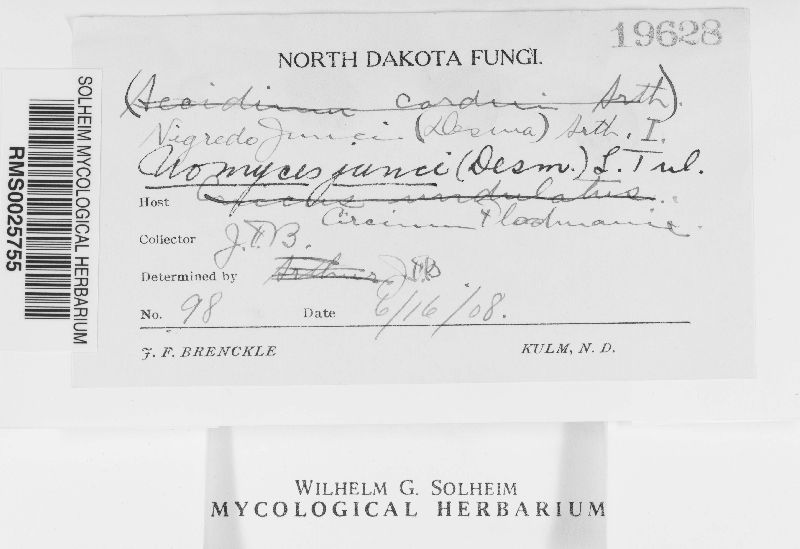 19628
NORTH DAKOTA FUNGI.
(Aecidium cardui Arth).
Nigredo Junci (Desma) Arth. I.
Uromyces junci (Desm.) L. Tul.
Host undulatus.
Circium Plodmania.
Collector J.F.B.
Determined by Arthur J.F.B
No. 98 Date 6/16/08.
J. F. BRENCKLE KULM, N. D.
SOLHEIM MYCOLOGICAL HERBARIUM
RMS0025755
WILHELM G. SOLHEIM
MYCOLOGICAL HERBARIUM